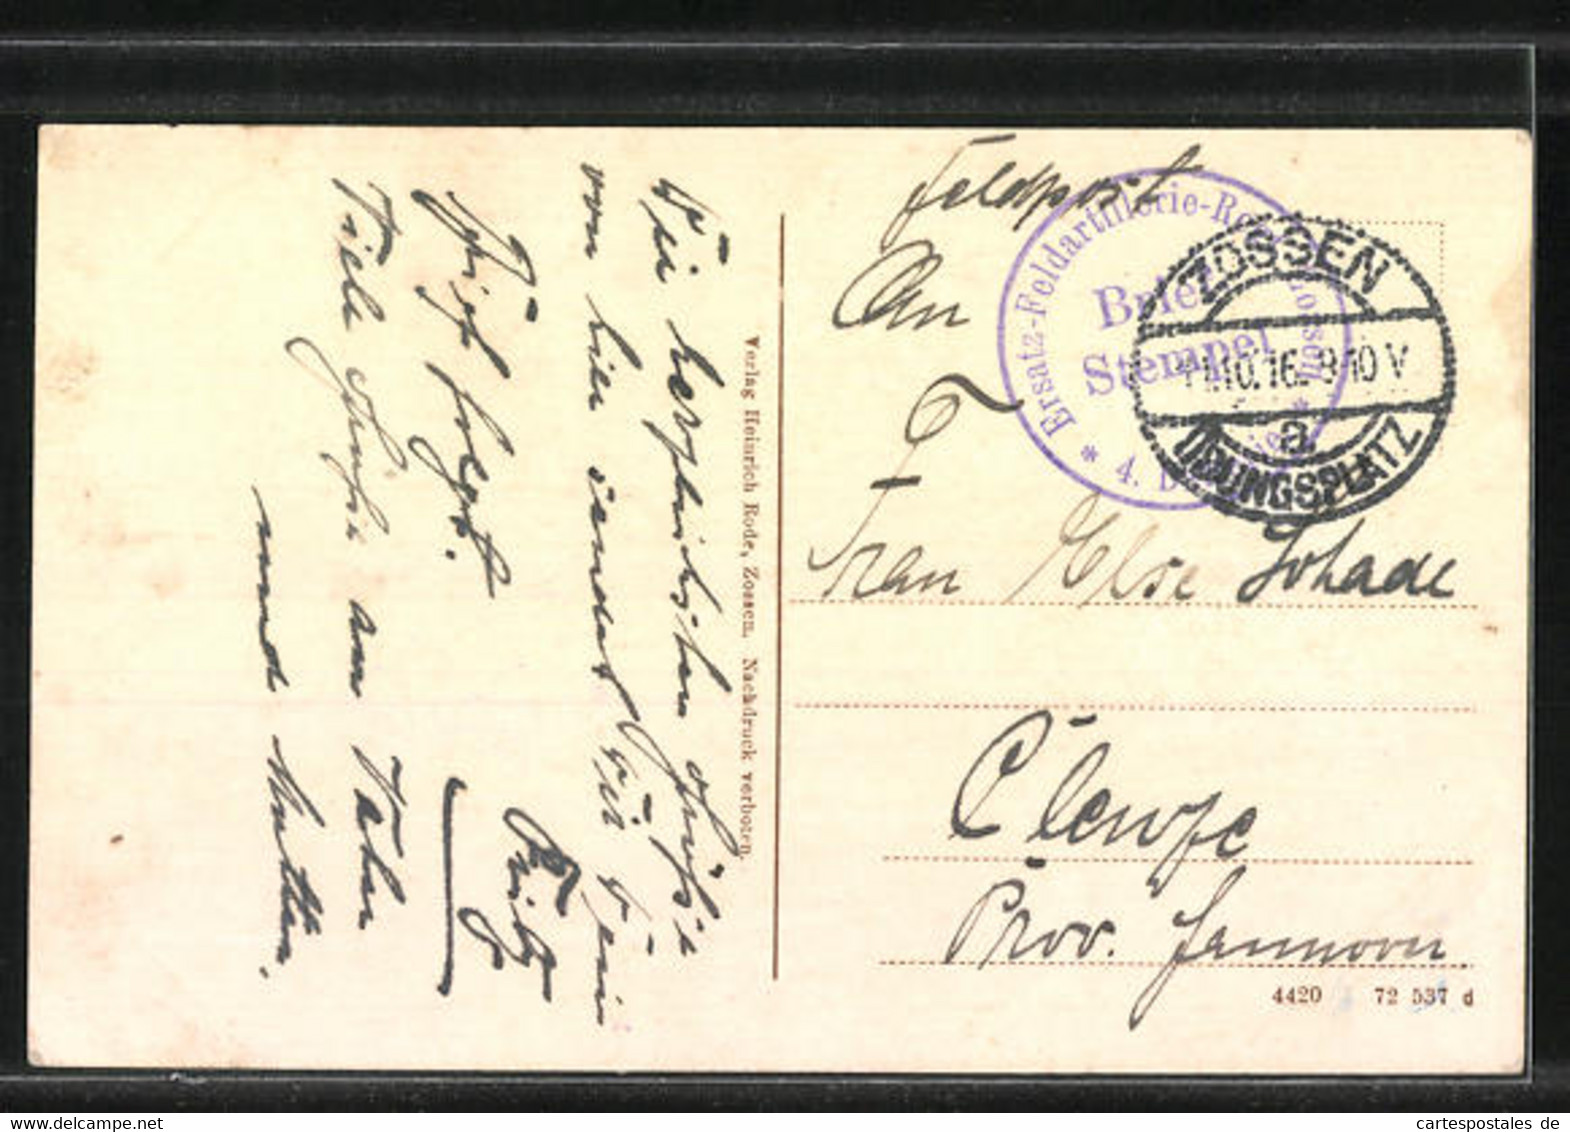 Feldpost
An
Frau Else Schade
Clenze
Prov. Hannover
Ersatz-Feldartillerie-Re Zossen
Brief
Stempel
* 4. *
ZOSSEN
10.16. 8-10 V
a
ÜBUNGSPLATZ
Die herzlichsten Grüße
von hier sendet Dir Dein
Fritz
Brief folgt.
Viele Grüße an Vater
und Mutter.
Verlag Heinrich Rode, Zossen. Nachdruck verboten.
4420 72 537 d
cartespostales de